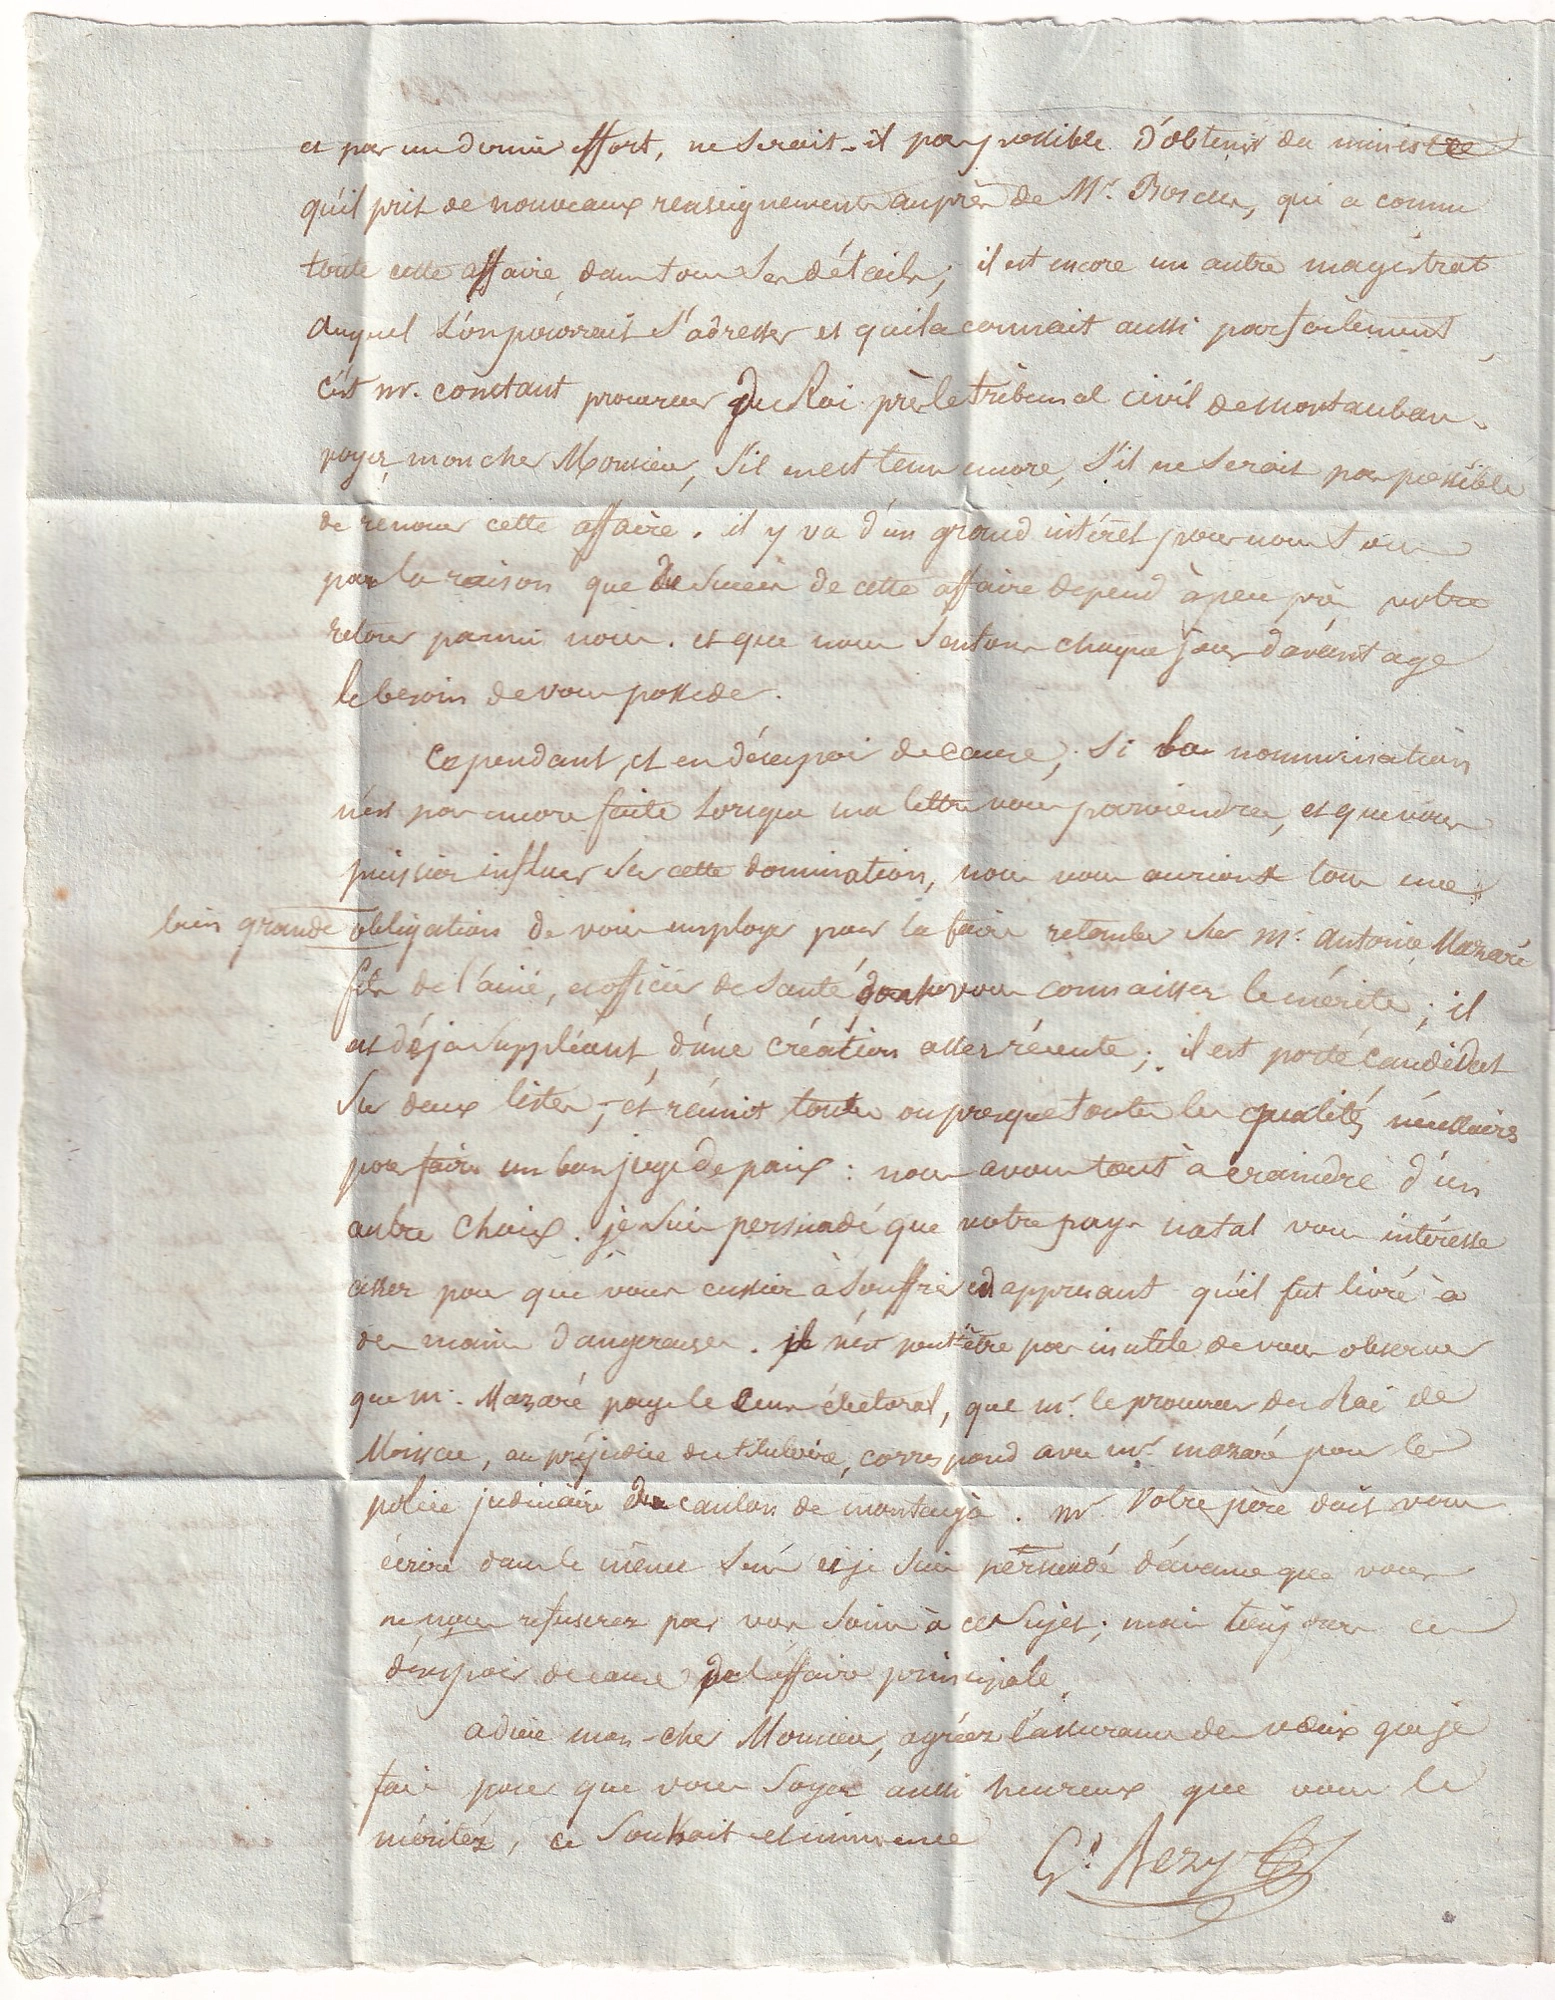 et par un dernier effort, ne serait-il pas possible d'obtenir du ministre
qu'il prit de nouveaux renseignements auprès de Mr. qui a connu
toute cette affaire dans tous ses détails; il est encore un autre magistrat
auquel l'on pourrait s'adresser et qui la connait aussi parfaitement
c'est mr. constant procureur du Roi près le tribunal civil de montauban.
voyez, mon cher Monsieur, s'il en est tems encore, s'il ne serait pas possible
de renouer cette affaire. il y va d'un grand intérêt pour nous tous
par la raison que du succès de cette affaire depend à peu près votre
retour parmi nous. et que nous sentons chaque jour davantage
le besoin de vous posseder.
Cependant, et en désespoir de cause, si la nommination
n'est pas encore faite lorsque ma lettre vous parviendra, et que vous
puissiez influer sur cette domination, nous vous aurions tous une
bien grande obligation de vous employer pour la faire retomber sur mr. Antoine Mazaré
fils de l'ainé, exofficier de Santé dont vous connaissez le mérite; il
est déja Suppléant, d'une création assez récente; il est porté candidat
sur deux listes, et réunit toutes ou presque toutes les qualités nécessaires
pour faire un bon juge de paix: nous avons tout à craindre d'un
autre choix. je suis persuadé que votre pays natal vous intéresse
assez pour que vous eussiez à souffrir en apprenant qu'il fut livré à
des mains dangereuses. il n'est peut être pas inutile de vous observer
que mr. Mazaré paye le cens électoral, que mr. le procureur du Roi de
Moissac, au préjudice du titulaire, correspond avec mr. mazaré pour la
police judiciaire du canton de montaigu. mr votre père doit vous
écrire dans le même sens et je suis persuadé d'avance que vous
ne nous refuserez pas vos soins à ce sujet; mais toujours en
désespoir de cause de l'affaire principale.
adieu mon cher Monsieur, agréez l'assurance des vœux que je
fais pour que vous soyez aussi heureux que vous le
méritez, ce souhait est immense
Gd. Rezy